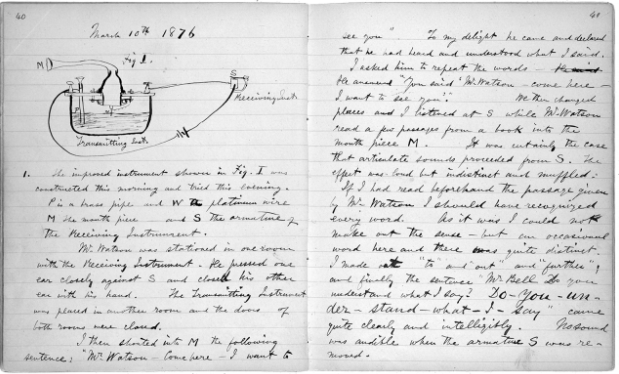 40
March 10th 1876
Fig 1.
M
S
Receiving Inst.
P
W
Transmitting Inst.
1. The improved instrument shown in Fig. I was
constructed this morning and tried this evening.
P is a brass pipe and W the platinum wire
M the mouth piece and S the armature of
the Receiving Instrument.
Mr. Watson was stationed in one room
with the Receiving Instrument. He pressed one
ear closely against S and closed his other
ear with his hand. The Transmitting Instrument
was placed in another room and the doors of
both rooms were closed.
I then shouted into M the following
sentence: "Mr. Watson - Come here - I want to
41
see you". To my delight he came and declared
that he had heard and understood what I said.
I asked him to repeat the words
He answered "You said 'Mr. Watson - come here -
I want to see you'." We then changed
places and I listened at S while Mr. Watson
read a few passages from a book into the
mouth piece M. It was certainly the case
that articulate sounds proceeded from S. The
effect was loud but indistinct and muffled.
If I had read beforehand the passage given
by Mr. Watson I should have recognized
every word. As it was I could not
make out the sense - but an occasional
word here and there was quite distinct.
I made out "to" and "out" and "further";
and finally the sentence "Mr. Bell Do you
understand what I say? Do-You-un-
der-stand-what-I-say" came
quite clearly and intelligibly. No sound
was audible when the armature S was re-
moved.